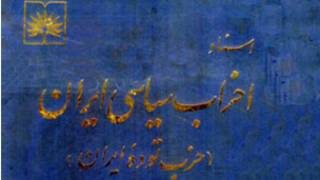 اسناد
احزاب سیاسی ایران
(حزب تودهٔ ایران)